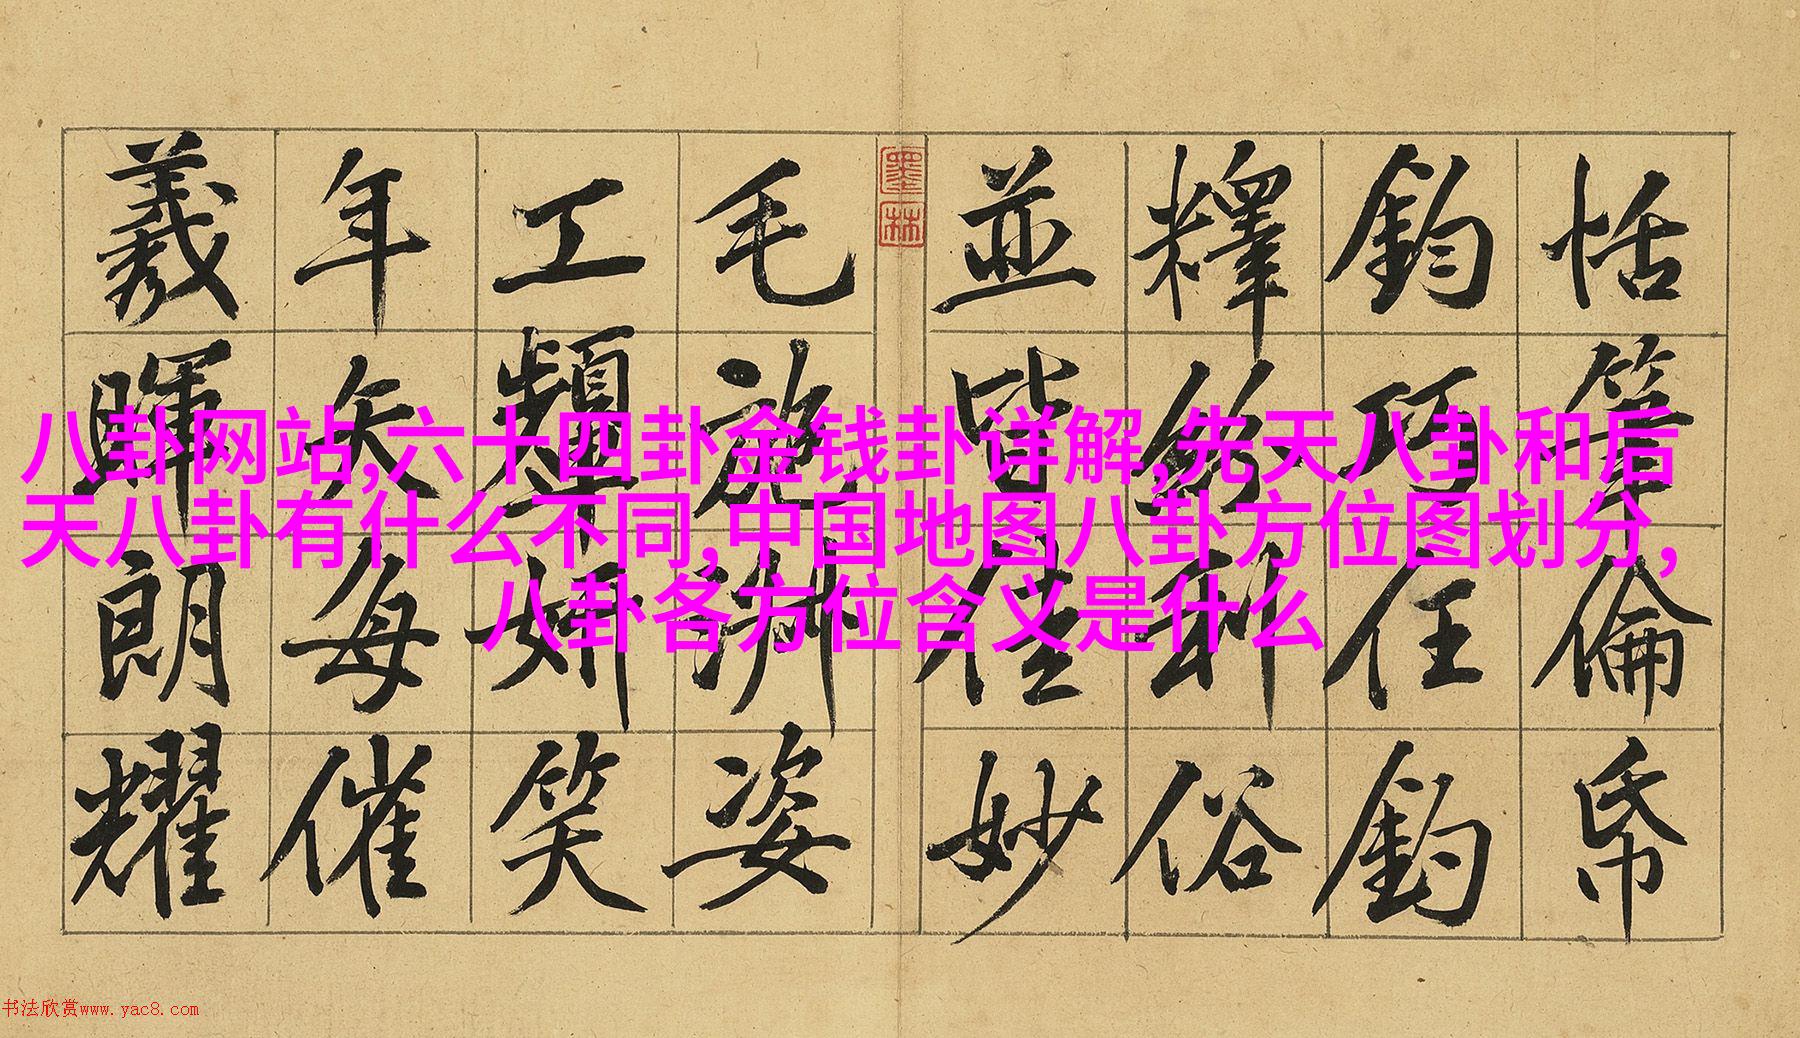 恬筆倫帋
鈞巧任釣
釋紛利俗
並皆佳妙
墨林
毛施淑姿
工顰妍笑
年矢每催
羲暉朗耀
八卦网站,六十四卦金钱卦详解,先天八卦和后
天八卦有什么不同,中国地图八卦方位图划分,
八卦各方位含义是什么
书法欣赏www.yac8.com